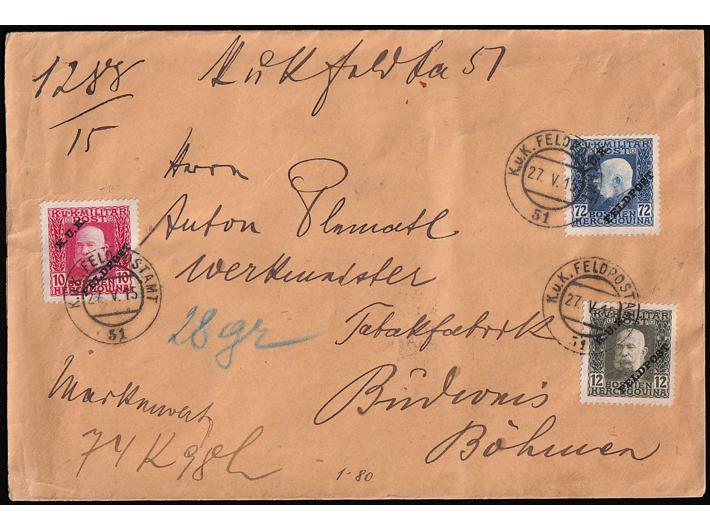 1288/15
KuKfeldpa 51
Herrn
Anton
Werkmeister
Tabakfabrik
Budweis
Böhmen
28 gr
Markenwert
74 K 98 h
1-80
K.u.K. MILITÄR
POST
K.U.K.
FELDPOST
10 10
BOSNIEN
HERCEGOVINA
K.u.K. FELDPOSTAMT
27. V. 15
51
K.u.K. MILITÄR
POST
K.U.K.
FELDPOST
72 72
BOSNIEN
HERCEGOVINA
K.u.K. FELDPO
27. V. 15
51
K.u.K. MILITÄR
POST
K.U.K.
FELDPOST
12 12
BOSNIEN
HERCEGOVINA
K.u.K. FELDPOSTA
27. V. 15
51